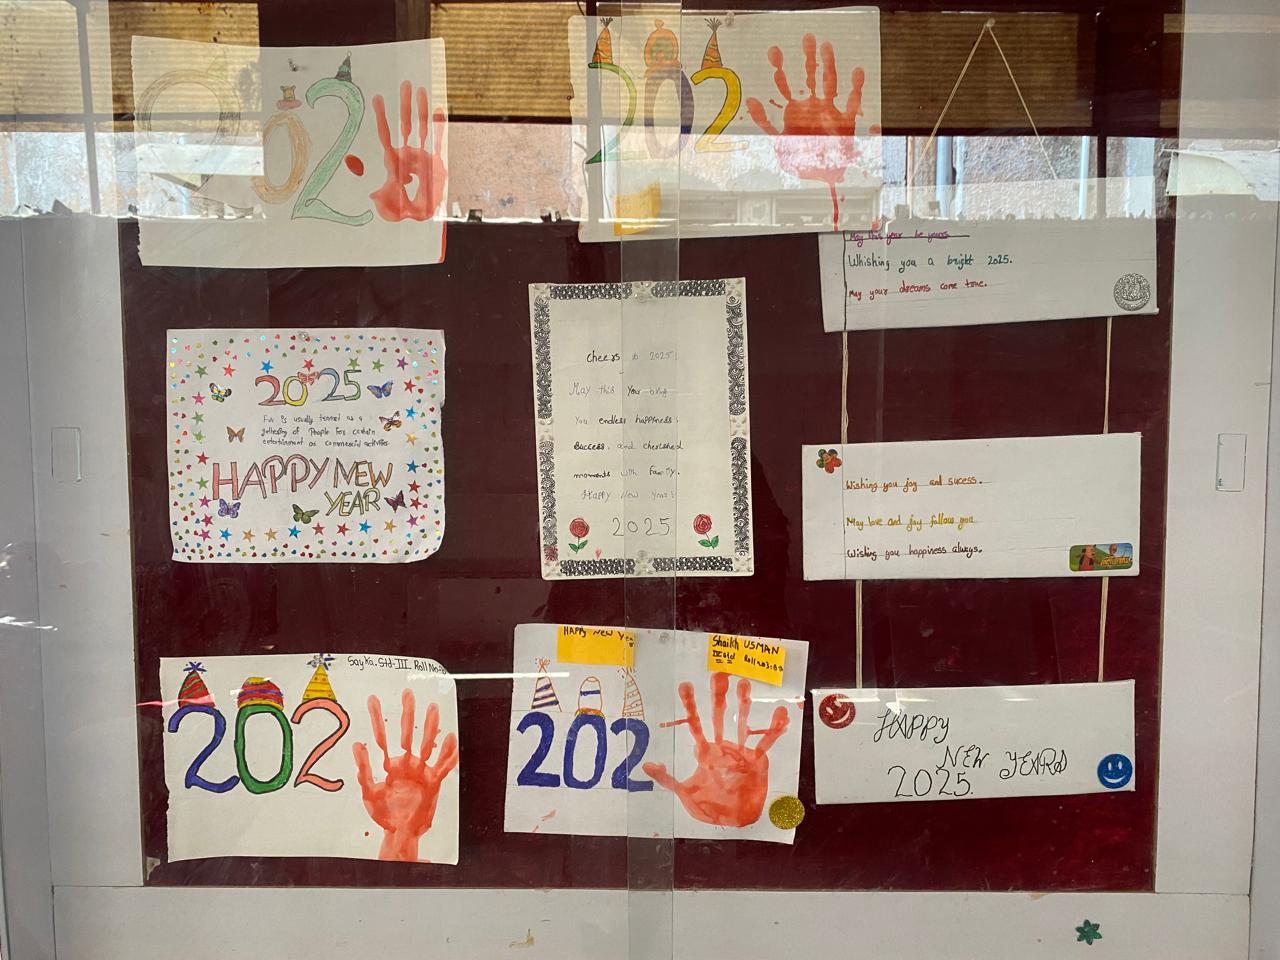 202
202
May this year be yours.
Whishing you a bright 2025.
May your dreams come true.
2025
Fun is usually termed as a
gathering of People For certain
entertainment or commercial activities.
HAPPY NEW
YEAR
Cheers to 2025!
May this Year bring
You endless happiness!
success, and cherished
moments with family.
Happy New Year!
2025
Wishing you joy and sucess.
May love and joy follow you
Wishing you happiness always.
Sayka. Std-III Roll No-
202
HAPPY New Year
Shaikh USMAN
202
HAPPY
NEW YEARS
2025.